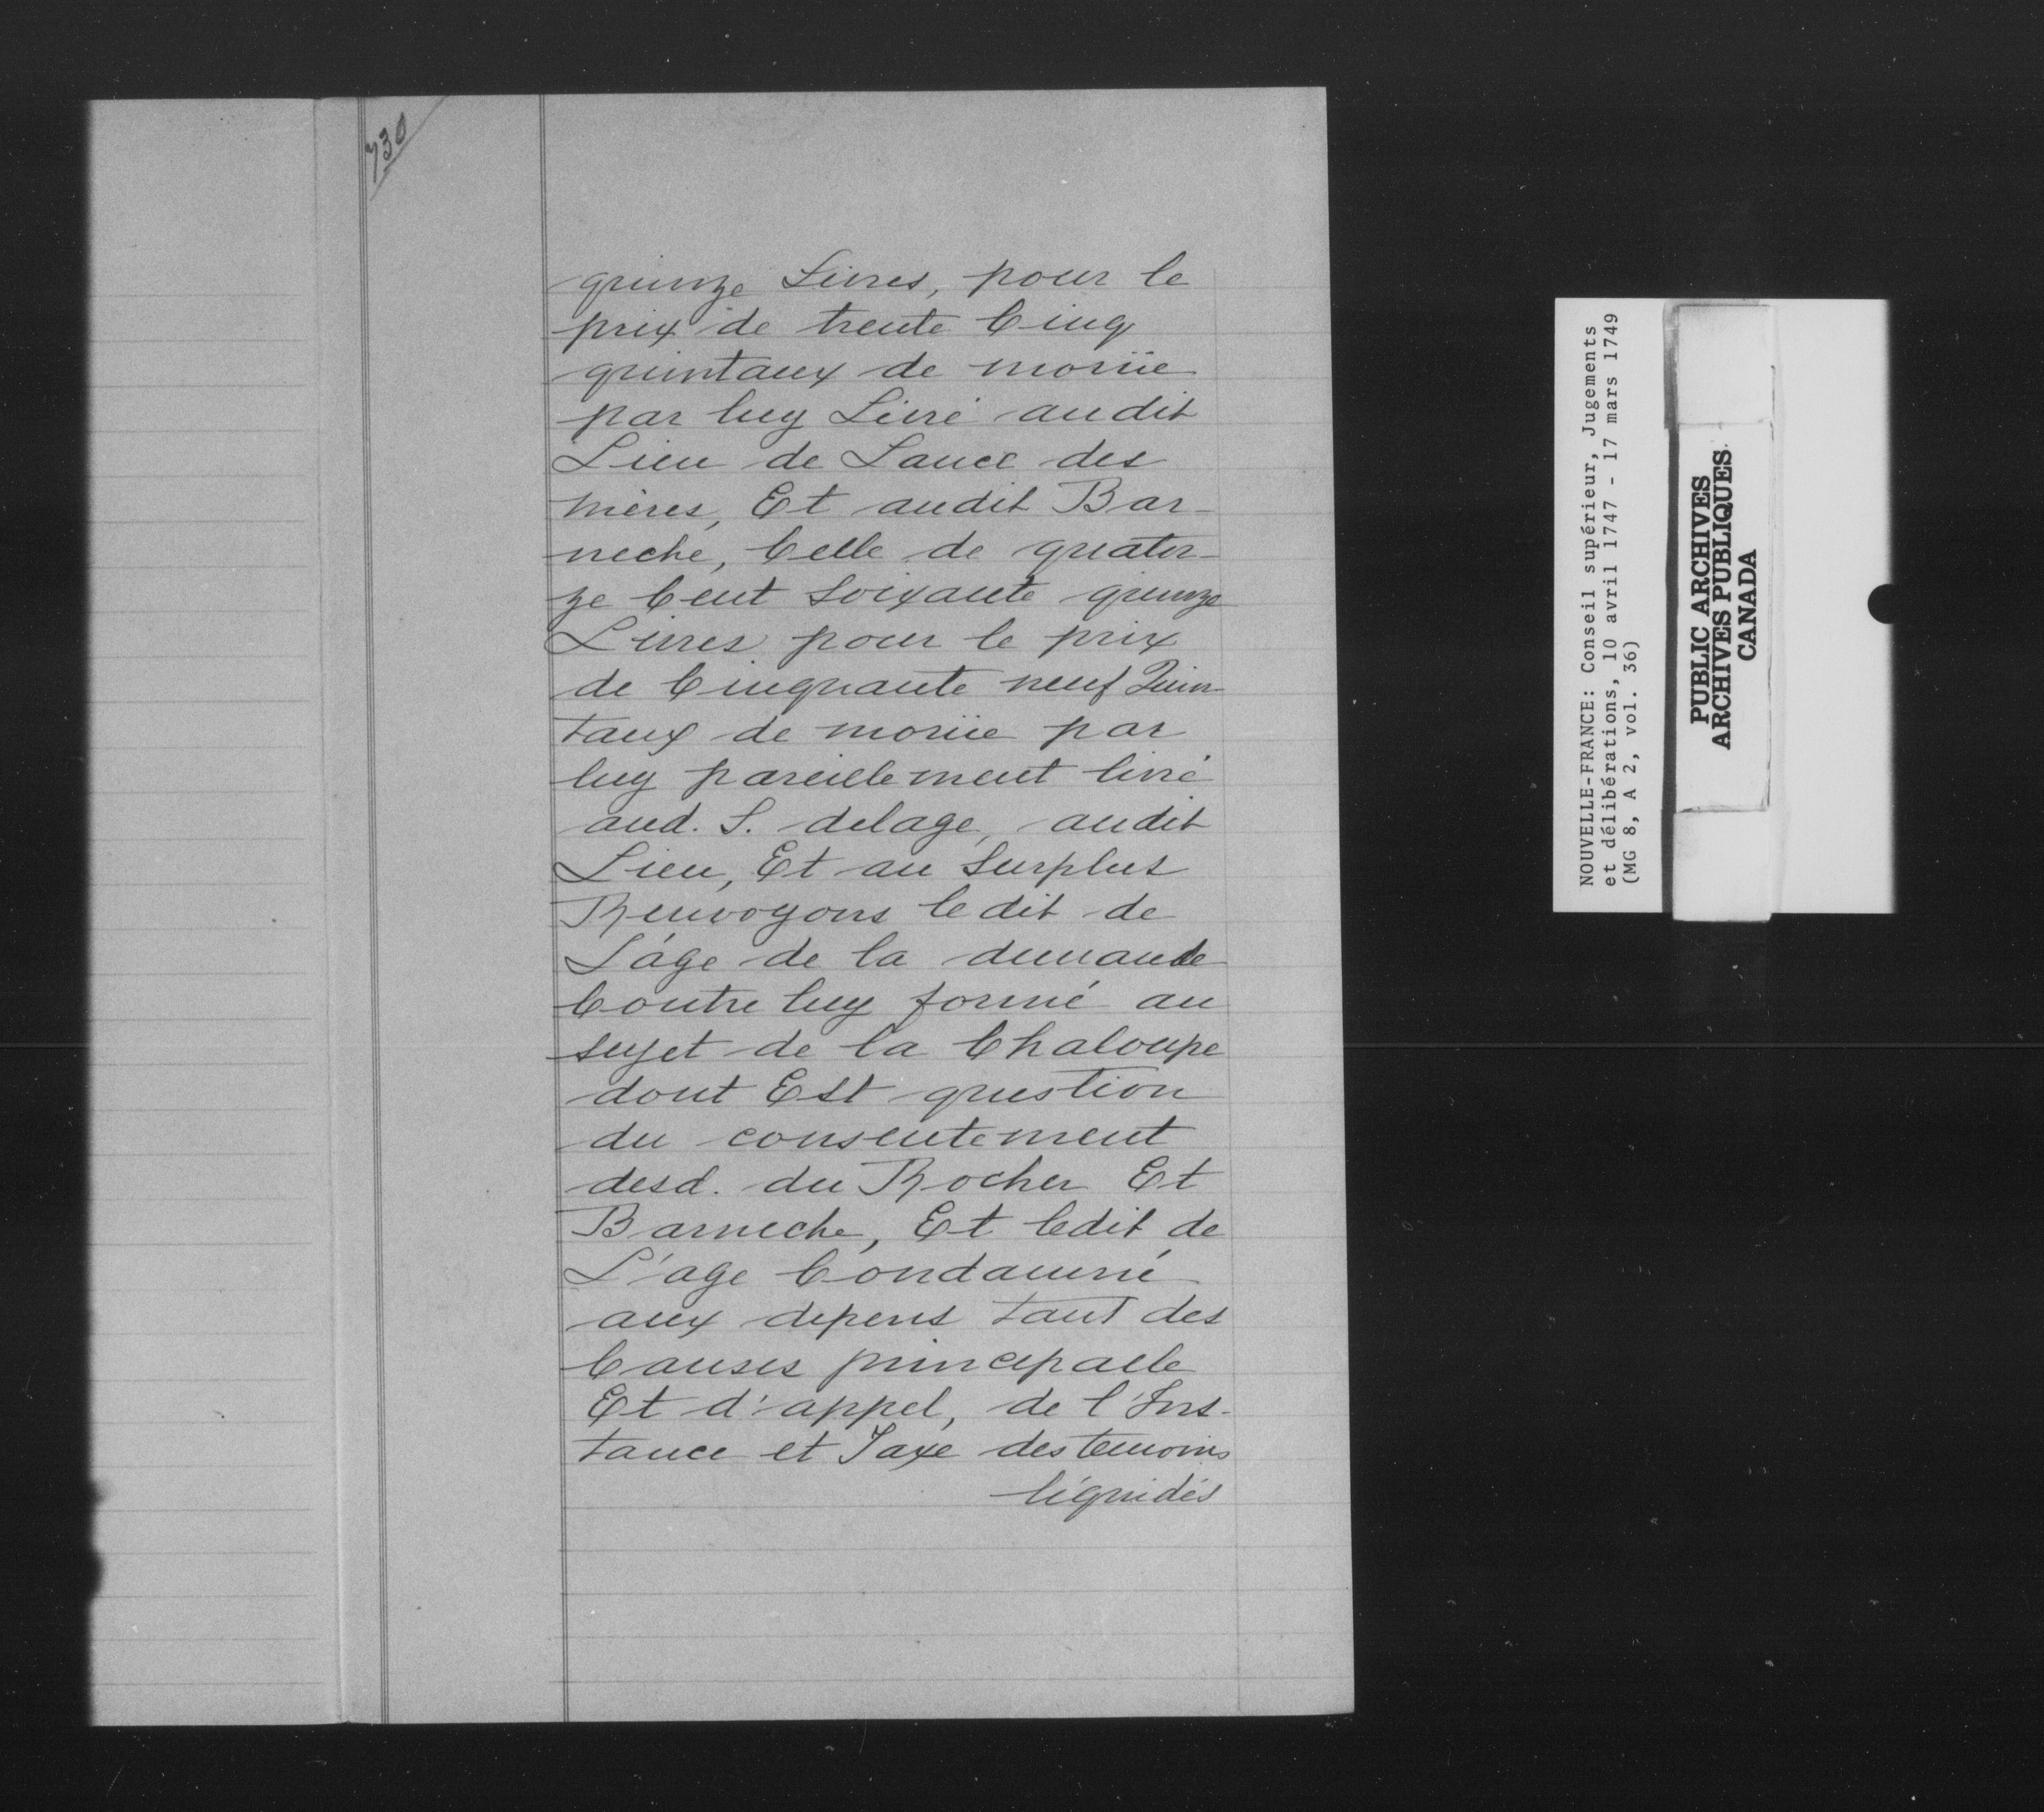 730
quinze Livres, pour le
prix de trente Cinq
quintaux de moruë
par luy Livré audit
Lieu de Lance des
mères, Et audit Bar-
neche, Celle de quator-
ze Cent soixante quinze
Livres pour le prix
de Cinquante neuf Quin-
taux de moruë par
luy pareillement livré
aud. S. delage, audit
Lieu, Et au Surplus
Renvoyons ledit de
L'áge de la demande
Contre luy formé au
sujet de la Chaloupe
dont Est question
du consentement
desd. du Rocher Et
Barneche, Et ledit de
L'age Condamné
aux depens tant des
Causes principalle
Et d'appel, de l'Ins-
tance et Taxe des temoins
liquidés
NOUVELLE-FRANCE: Conseil supérieur, Jugements
et délibérations, 10 avril 1747 - 17 mars 1749
(MG 8, A 2, vol. 36)
PUBLIC ARCHIVES
ARCHIVES PUBLIQUES
CANADA